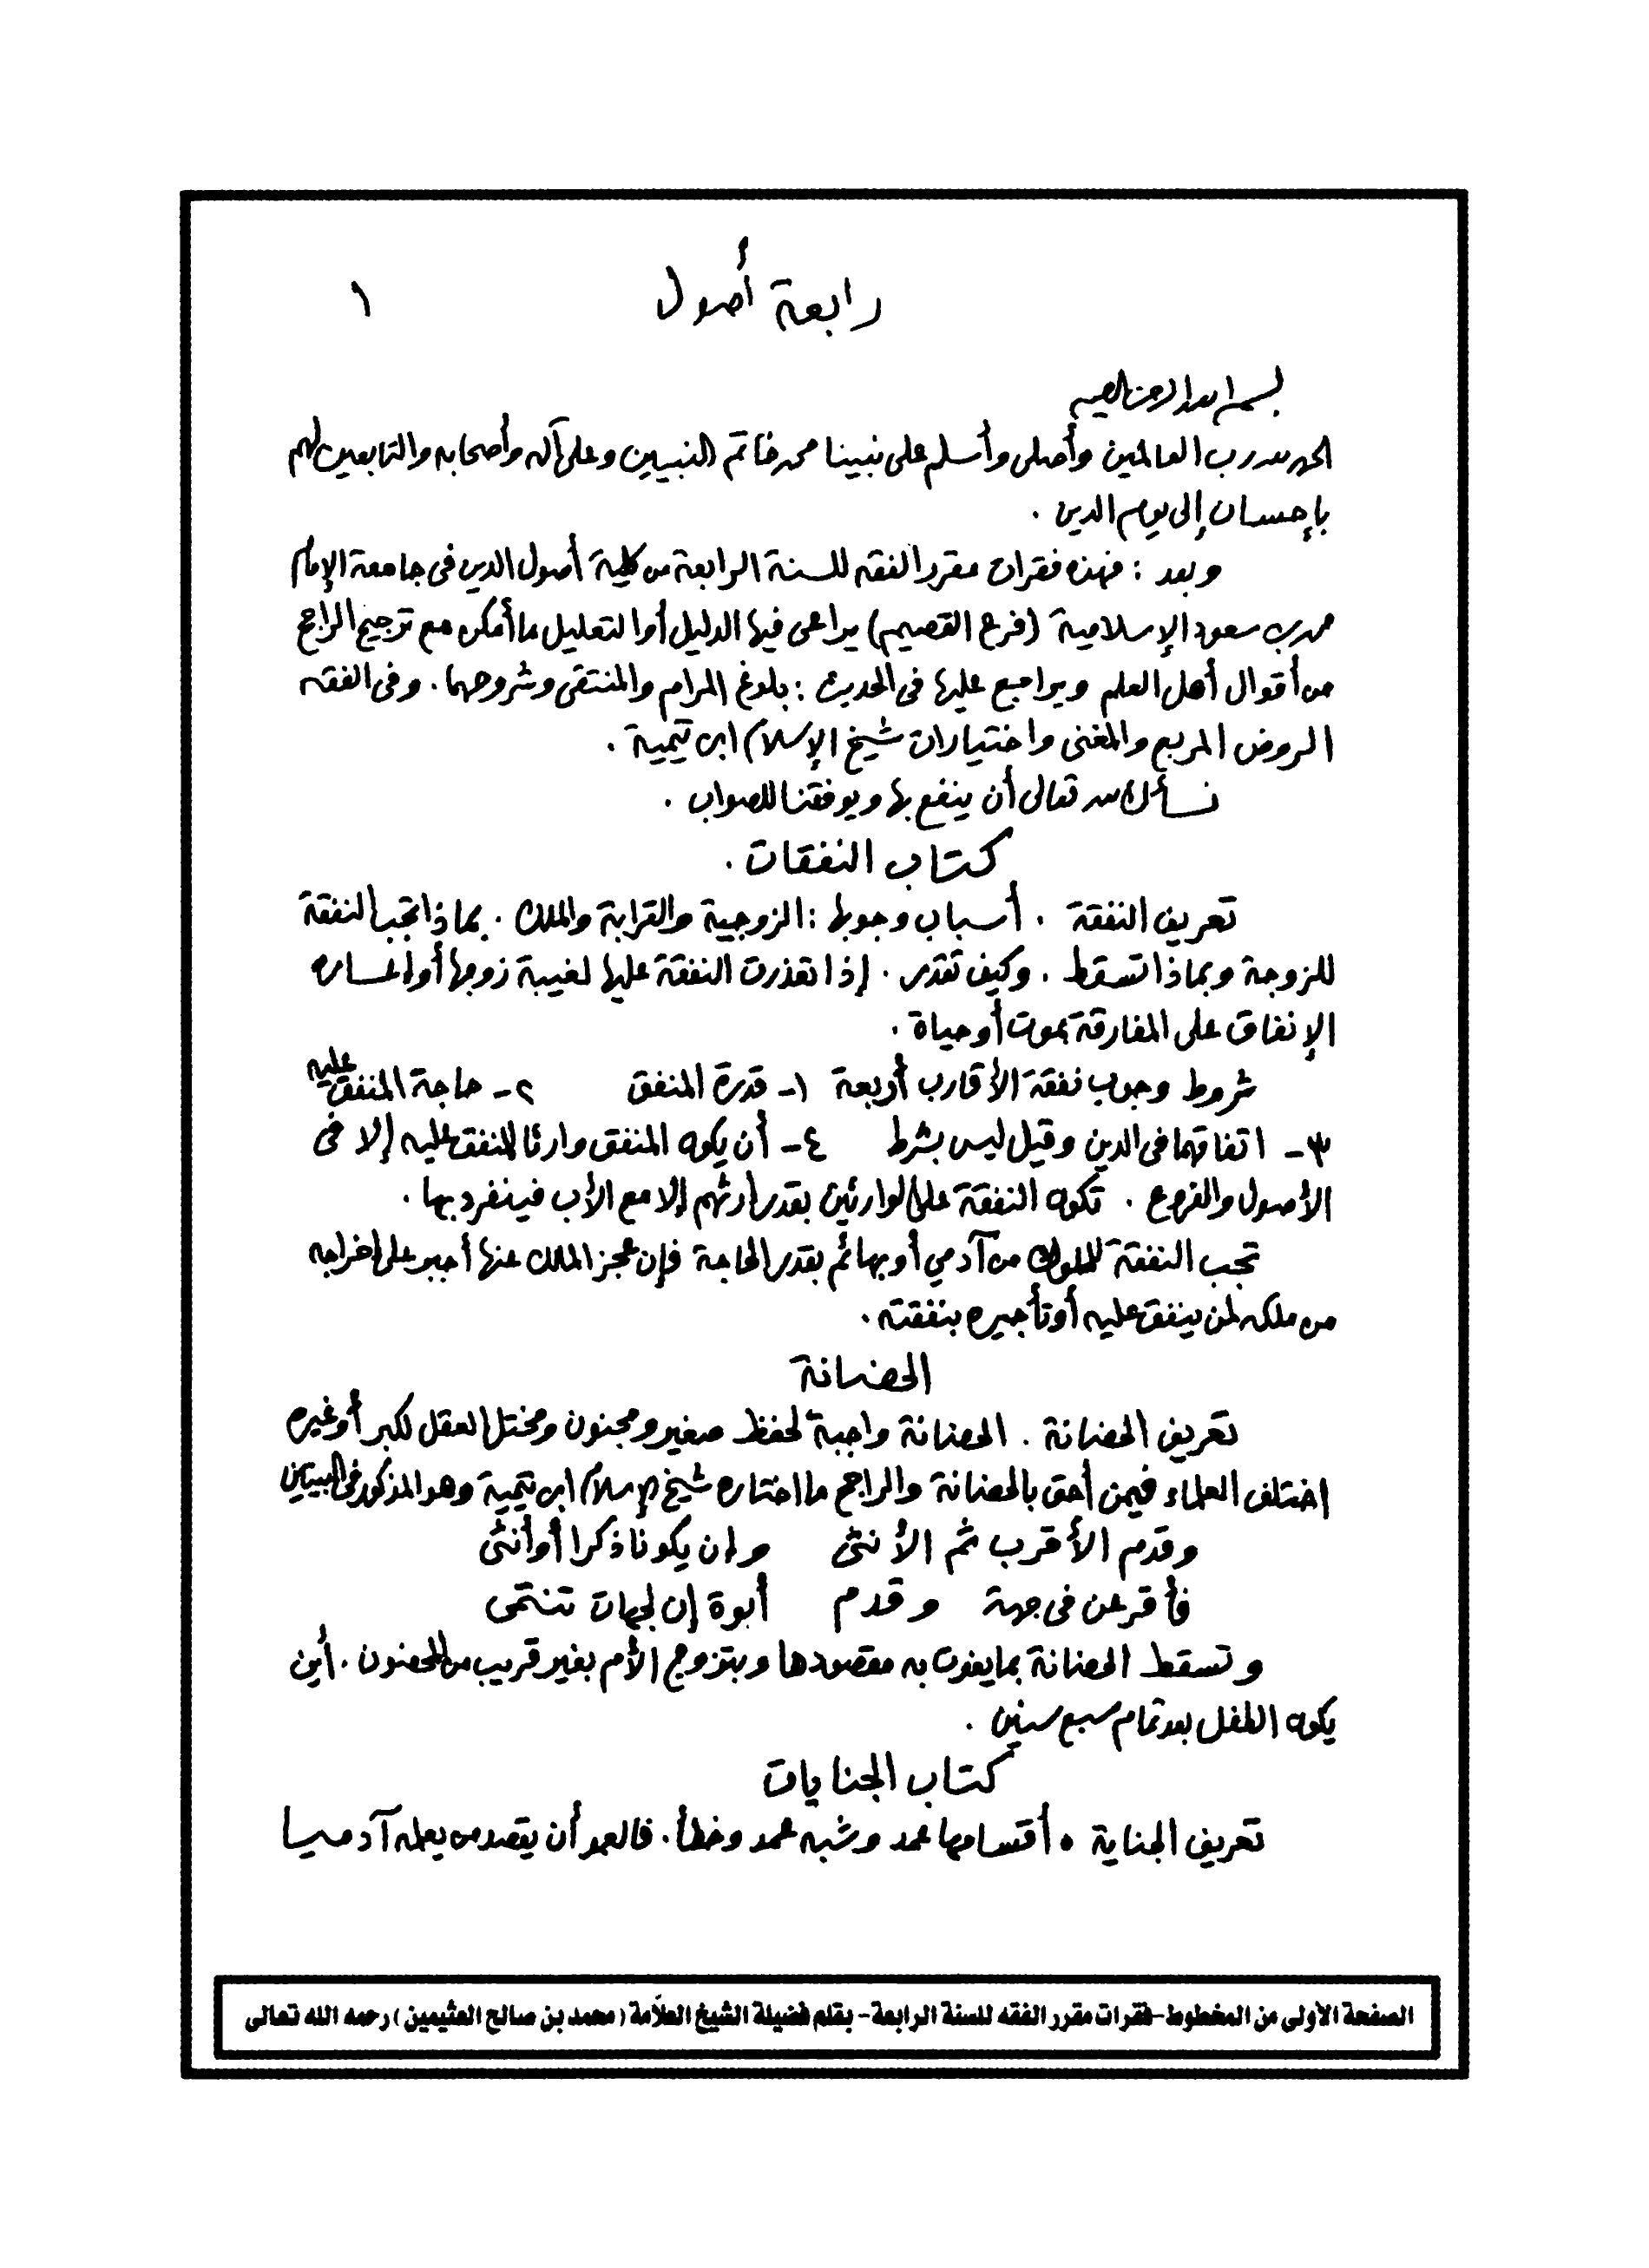 رابعة أصول
١
بسم الله الرحمن الرحيم
الحمد لله رب العالمين وأصلي وأسلم على نبينا محمد خاتم النبيين وعلى آله وأصحابه والتابعين لهم
بإحسان إلى يوم الدين .
وبعد : فهذه فقرات مقرر الفقه للسنة الرابعة من كلية أصول الدين في جامعة الإمام
محمد بن سعود الإسلامية (فرع القصيم) يراعى فيها الدليل أو التعليل ما أمكن مع ترجيح الراجح
من أقوال أهل العلم ويراجع عليها في الحديث : بلوغ المرام والمنتقى وشروحهما . وفي الفقه
الروض المربع والمغني واختيارات شيخ الإسلام ابن تيمية .
نسأل الله تعالى أن ينفع بها ويوفقنا للصواب .
كتاب النفقات .
تعريف النفقة . أسباب وجوبها : الزوجية والقرابة والملك . بماذا تجب النفقة
للزوجة وبماذا تسقط . وكيف تقدر . إذا تعذرت النفقة عليها لغيبة زوجها أو إعساره
الإنفاق على المفارقة بموت أو حياة .
شروط وجوب نفقة الأقارب أربعة ١- قدرة المنفق ٢- حاجة المنفق عليه
٣- اتفاقهما في الدين وقيل ليس بشرط ٤- أن يكون المنفق وارثا للمنفق عليه إلا في
الأصول والفروع . تكون النفقة على الوارثين بقدر إرثهم إلا مع الأب فينفرد بها .
تجب النفقة للمملوك من آدمي أو بهائم بقدر الحاجة فإن عجز المالك عنها أجبر على إخراجه
من ملكه لمن ينفق عليه أو تأجيره بنفقته .
الحضانة
تعريف الحضانة . الحضانة واجبة لحفظ صغير ومجنون ومختل العقل لكبر أو غيره
اختلف العلماء فيمن أحق بالحضانة والراجح ما اختاره شيخ الإسلام ابن تيمية وهو المذكور في البيتين
وقدم الأقرب ثم الأنثى وإن يكونا ذكرا أو أنثى
فأقرعن في جهة وقدم أبوة إن لجهات تنتمي
وتسقط الحضانة بما يفوت به مقصودها وبتزوج الأم بغير قريب من المحضون . أين
يكون الطفل بعد تمام سبع سنين .
كتاب الجنايات
تعريف الجناية . أقسامها عمد وشبه عمد وخطأ . فالعمد أن يقصد من يعلمه آدميا
الصفحة الأولى من المخطوط-فقرات مقرر الفقه للسنة الرابعة- بقلم فضيلة الشيخ العلاّمة ( محمد بن صالح العثيمين ) رحمه الله تعالى